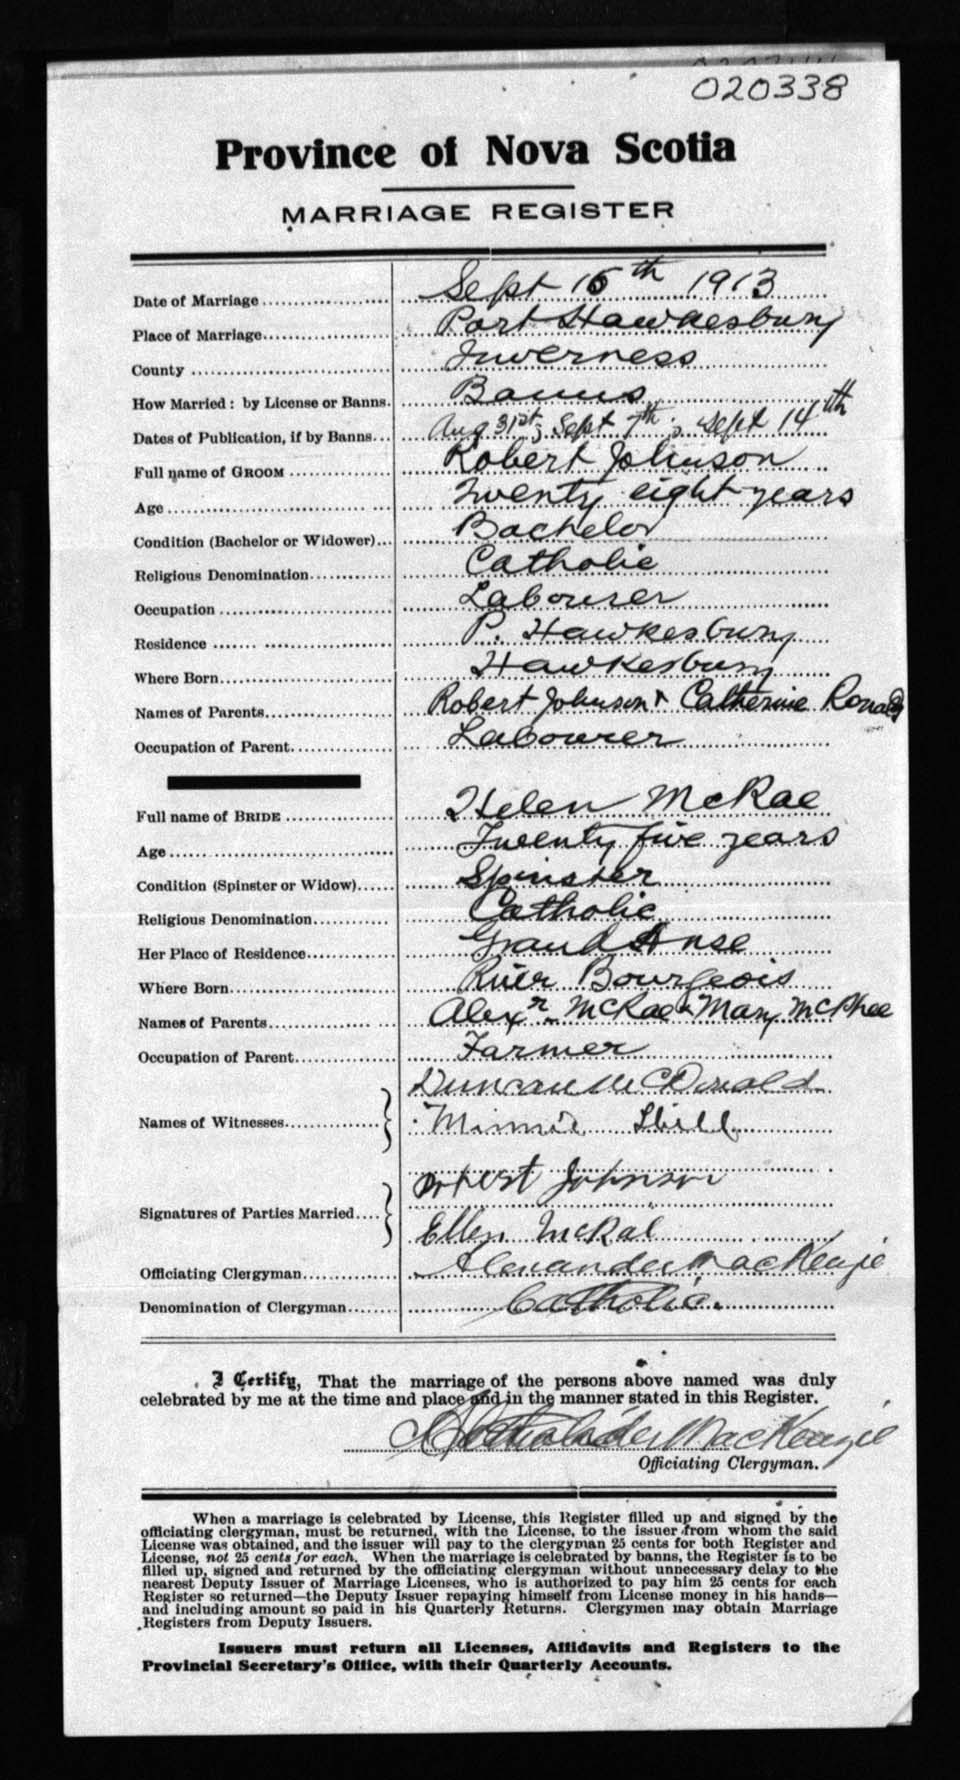 020338
Province of Nova Scotia
MARRIAGE REGISTER
Date of Marriage Sept 16th 1913
Place of Marriage Port Hawkesbury
County Inverness
How Married: by License or Banns. Banns
Dates of Publication, if by Banns Aug 31st; Sept 7th; Sept 14th
Full name of GROOM Robert Johnson
Age Twenty eight years
Condition (Bachelor or Widower) Bachelor
Religious Denomination Catholic
Occupation Labourer
Residence P. Hawkesbury
Where Born Hawkesbury
Names of Parents Robert Johnson & Catherine
Occupation of Parent Labourer
Full name of BRIDE Helen McRae
Age Twenty five years
Condition (Spinster or Widow) Spinster
Religious Denomination Catholic
Her Place of Residence Grand Anse
Where Born River Bourgeois
Names of Parents Alexr McRae & Mary McPhee
Occupation of Parent Farmer
Duncan McDonald
Names of Witnesses Minnie
Robert Johnson
Signatures of Parties Married
Ellen McRae
Officiating Clergyman Alexander MacKenzie
Denomination of Clergyman Catholic.
I Certify, That the marriage of the persons above named was duly
celebrated by me at the time and place and in the manner stated in this Register.
Alexander MacKenzie
Officiating Clergyman.
When a marriage is celebrated by License, this Register filled up and signed by the
officiating clergyman, must be returned, with the License, to the issuer from whom the said
License was obtained, and the issuer will pay to the clergyman 25 cents for both Register and
License, not 25 cents for each. When the marriage is celebrated by banns, the Register is to be
filled up, signed and returned by the officiating clergyman without unnecessary delay to the
nearest Deputy Issuer of Marriage Licenses, who is authorized to pay him 25 cents for each
Register so returned—the Deputy Issuer repaying himself from License money in his hands—
and including amount so paid in his Quarterly Returns. Clergymen may obtain Marriage
Registers from Deputy Issuers.
Issuers must return all Licenses, Affidavits and Registers to the
Provincial Secretary's Office, with their Quarterly Accounts.